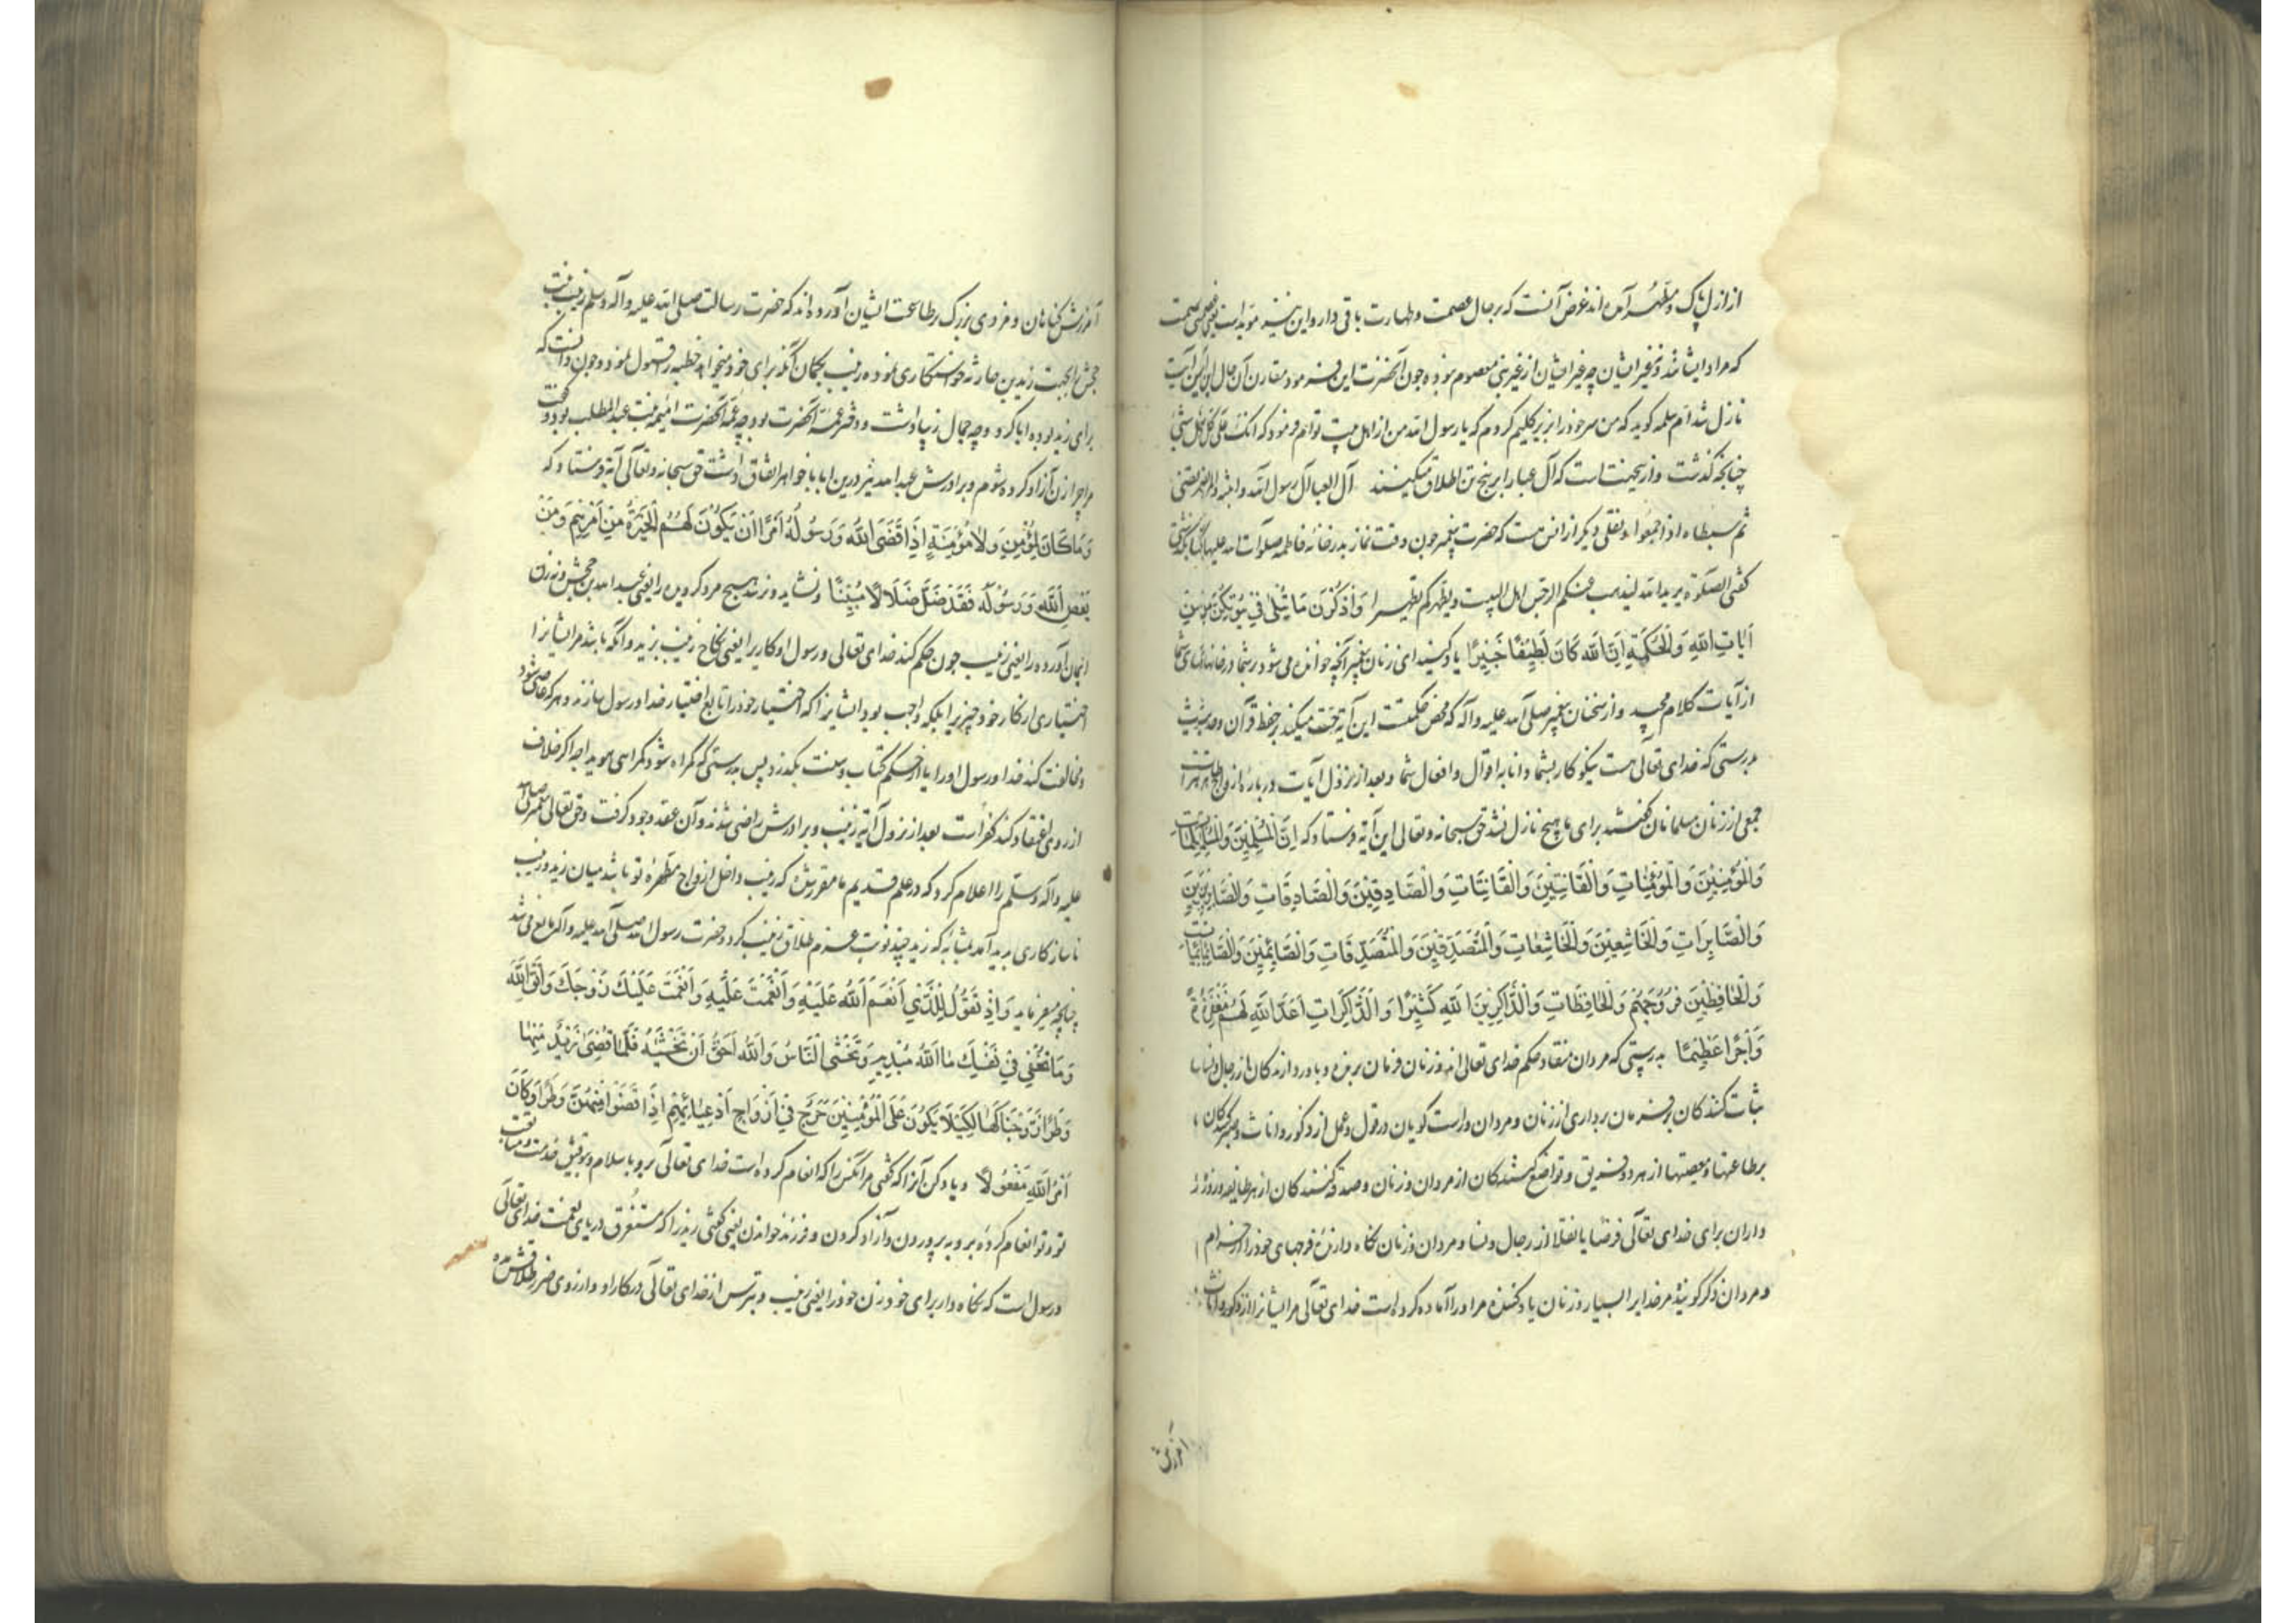 از ازل پاک و مطهر آمده اند غرض آنست که بر حال عصمت و طهارت باقی دارد و این نیز مؤید است
که مراد ایشانند نه غیر ایشان چه غیر ایشان از غیر نبی معصوم نبوده چون آنحضرت این فرمود مقارن آن حال این آیت
نازل شد ام سلمه کوید که من سر خود را بزیر کلیم کردم که یا رسول الله من از اهل بیت توام فرمود که انک علی
چنانچه کذشت و از یجهتست که آل عبا را بر پنج تن اطلاق میکنند آل العبا آل رسول الله و ابنته و المرتضی
ثم سبطاه اذا اجمعوا و نقلی دیکر از انس هست که حضرت پیغمبر چون وقت نماز بدر خانه فاطمه صلوات الله علیها
کفتی الصلوة یرید الله لیذهب عنکم الرجس اهل البیت و یطهرکم تطهیرا وَاذْكُرْنَ مَا يُتْلَىٰ فِي بُيُوتِكُنَّ مِنْ
آيَاتِ اللَّهِ وَالْحِكْمَةِ إِنَّ اللَّهَ كَانَ لَطِيفًا خَبِيرًا یاد کنید ای زنان پیغمبر آنچه خوانده می شود بر شما در خانهای شما
از آیات کلام مجید و از سخنان پیغمبر صلی الله علیه و آله که محض حکمتست این آیة حث میکند بر حفظ قرآن و حدیث
بدرستی که خدای تعالی هست نیکو کار بشما دانا به اقوال و افعال شما و بعد از نزول آیات در باره ازواج طاهرات
جمعی از زنان مسلمانان کفتند برای ما هیچ نازل نشد حق سبحانه و تعالی این آیة فرستاد که إِنَّ الْمُسْلِمِينَ وَالْمُسْلِمَاتِ
وَالْمُؤْمِنِينَ وَالْمُؤْمِنَاتِ وَالْقَانِتِينَ وَالْقَانِتَاتِ وَالصَّادِقِينَ وَالصَّادِقَاتِ وَالصَّابِرِينَ
وَالصَّابِرَاتِ وَالْخَاشِعِينَ وَالْخَاشِعَاتِ وَالْمُتَصَدِّقِينَ وَالْمُتَصَدِّقَاتِ وَالصَّائِمِينَ وَالصَّائِمَاتِ
وَالْحَافِظِينَ فُرُوجَهُمْ وَالْحَافِظَاتِ وَالذَّاكِرِينَ اللَّهَ كَثِيرًا وَالذَّاكِرَاتِ أَعَدَّ اللَّهُ لَهُمْ مَغْفِرَةً
وَأَجْرًا عَظِيمًا بدرستی که مردان منقاد حکم خدای تعالی اند و زنان فرمان برنده و باور دارندکان از رجال و نسا
ثبات کنندکان بر فرمان برداری از زنان و مردان و راست کویان در قول و عمل از ذکور و اناث و صبر کنندکان
بر طاعتها و معصیتها از هر دو فریق و تواضع کنندکان از مردان و زنان و صدقه کنندکان از هر طایفه و روزه
داران برای خدای تعالی فرضا یا نفلا از رجال و نسا و مردان و زنان نکاه دارنده فرجهای خود را از حرام
و مردان ذکر کوینده مر خدایرا بسیار و زنان یاد کننده مر او را آماده کرده است خدای تعالی مر ایشانرا از ذکور و اناث
آمرزش
آمرزش کناهان و مزدی بزرک بر طاعت ایشان آورده اند که حضرت رسالت صلی الله علیه و آله و سلم زینب بنت
جحش را بجهت زید بن حارثه خواستکاری نمود زینب بکمان آنکه برای خود میخواهد خطبه را قبول نمود و چون دانست که
برای زید بوده ابا کرد و چه جمال زیبا داشت و دختر عمه آنحضرت بود چه عمه آنحضرت امیمه بنت عبد المطلب بود و کفت
مرا چرا زن آزاد کرده شوم و برادرش عبد الله نیز درین ابا با خواهر اتفاق داشت حق سبحانه و تعالی آیة فرستاد که
وَمَا كَانَ لِمُؤْمِنٍ وَلَا مُؤْمِنَةٍ إِذَا قَضَى اللَّهُ وَرَسُولُهُ أَمْرًا أَنْ يَكُونَ لَهُمُ الْخِيَرَةُ مِنْ أَمْرِهِمْ وَمَنْ
يَعْصِ اللَّهَ وَرَسُولَهُ فَقَدْ ضَلَّ ضَلَالًا مُبِينًا و نشاید و نزند هیچ مرد کرویده را یعنی عبد الله بن جحش و نه زن
ایمان آورده را یعنی زینب چون حکم کند خدای تعالی و رسول او کاریرا یعنی نکاح زینب بزید و آنکه باشد مر ایشانرا
اختیاری از کار خود چیزیرا بلکه واجب بود ایشانرا که اختیار خود را تابع اختیار خدا و رسول سازند و هر که عاصی شود
و مخالفت کند خدا و رسول او را یا از حکم کتاب و سنت بکذرد پس بدرستی که کمراه شود کمراهی هویدا چه اکر خلاف
از روی اعتقاد کند کفر است بعد از نزول آیة زینب و برادرش راضی شدند و آن عقد وجود کرفت و حق تعالی پیغمبر صلی الله
علیه و آله و سلم را اعلام کرد که در علم قدیم ما مقرر شده که زینب داخل ازواج مطهره تو باشد میان زید و زینب
ناسازکاری پدید آمد بمثابه که زید چند نوبت عزم طلاق زینب کرد و حضرت رسول الله صلی الله علیه و آله مانع می شد
چنانچه میفرماید وَإِذْ تَقُولُ لِلَّذِي أَنْعَمَ اللَّهُ عَلَيْهِ وَأَنْعَمْتَ عَلَيْهِ وَأَنْعَمْتَ عَلَيْكَ زَوْجَكَ وَاتَّقِ اللَّهَ
وَمَا تُخْفِي فِي نَفْسِكَ مَا اللَّهُ مُبْدِيهِ وَتَخْشَى النَّاسَ وَاللَّهُ أَحَقُّ أَنْ تَخْشَيٰهُ فَلَمَّا قَضَىٰ زَيْدٌ مِنْهَا
وَطَرًا زَوَّجْنَاكَهَا لِكَيْلَا يَكُونَ عَلَى الْمُؤْمِنِينَ حَرَجٌ فِي أَزْوَاجِ أَدْعِيَائِهِمْ إِذَا قَضَوْا مِنْهُنَّ وَطَرًا وَكَانَ
أَمْرُ اللَّهِ مَفْعُولًا و یاد کن آنرا که کفتی مر آنکس را که انعام کرده است خدای تعالی برو باسلام و توفیق خدمت و متابعت
تو و تو انعام کرده برو به پروردن و آزاد کردن و فرزند خواندن یعنی کفتی زید را که مستغرق دریای نعمت خدای تعالی
و رسول است که نکاه دار برای خود زن خود را یعنی زینب و بترس از خدای تعالی در کار او و از روی ضرر طلاقش مده